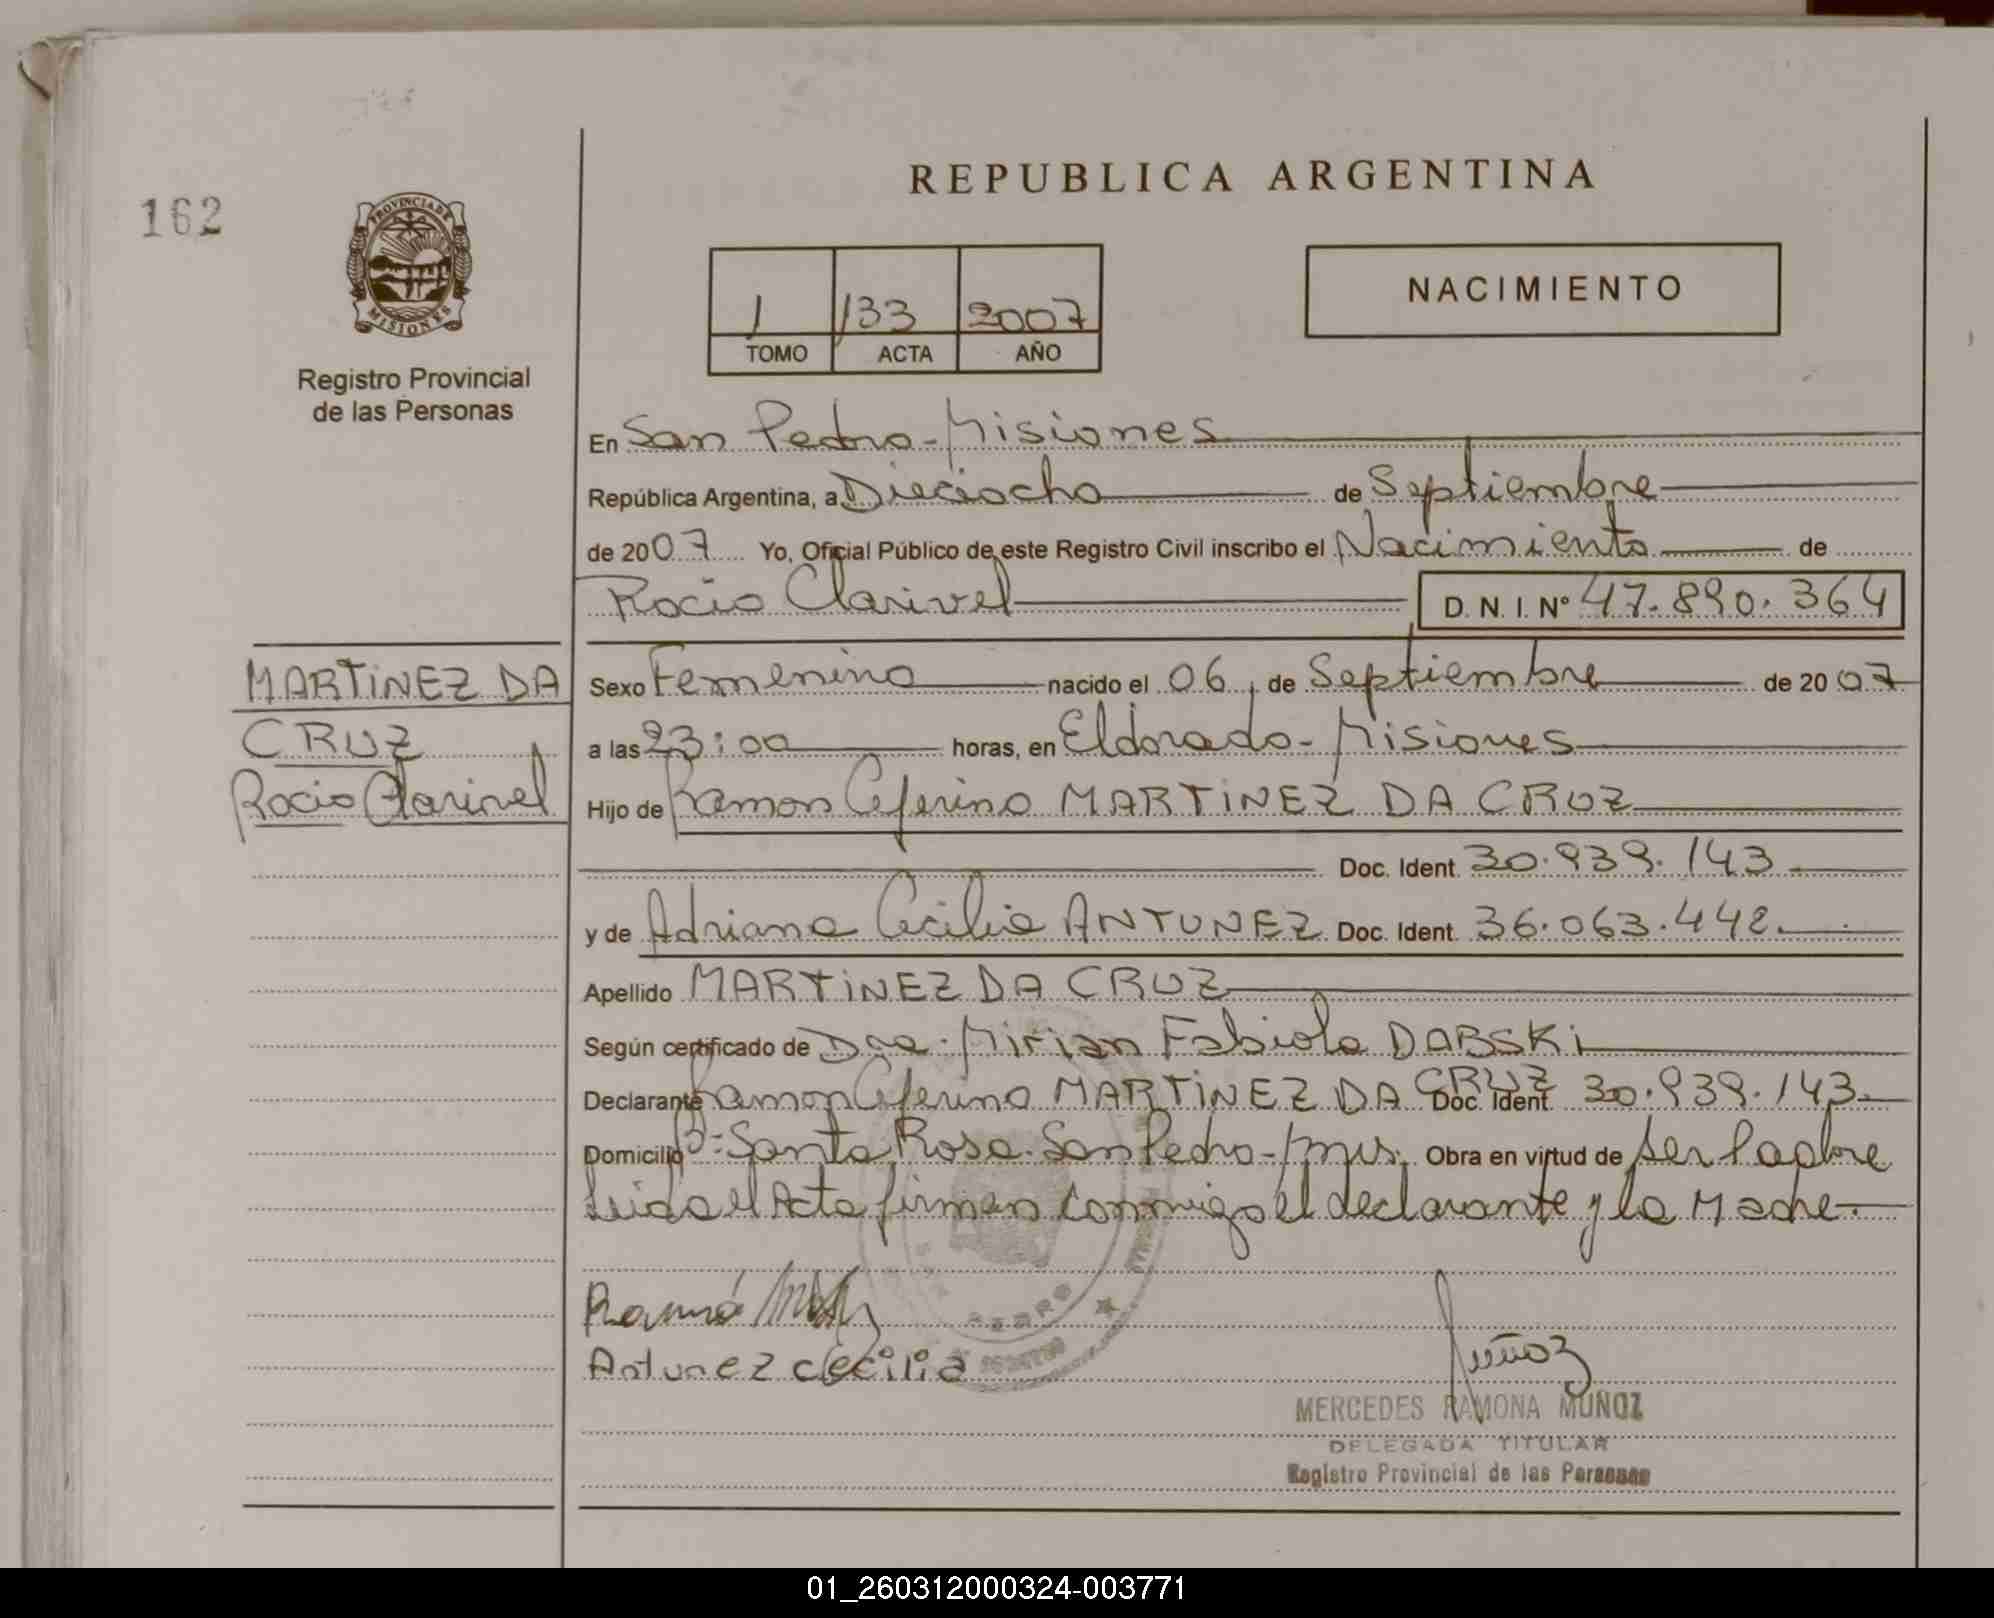 REPUBLICA ARGENTINA
162
PROVINCIA DE
MISIONES
Registro Provincial
de las Personas
1 133 2007
TOMO ACTA AÑO
NACIMIENTO
En San Pedro - Misiones
República Argentina, a Dieciocho de Septiembre
de 2007 Yo, Oficial Público de este Registro Civil inscribo el Nacimiento de
Rocio Clarivel D. N. I. Nº 47.890.364
MARTiNEZ DA
CRUZ
Rocio Clarivel
Sexo Femenino nacido el 06 de Septiembre de 2007
a las 23:00 horas, en Eldorado - Misiones
Hijo de Ramon Ceferino MARTiNEZ DA CRUZ
Doc. Ident. 30.939.143
y de Adriana Cecilia ANTUNEZ Doc. Ident. 36.063.442.
Apellido MARTiNEZ DA CRUZ
Según certificado de Dra. Mirian Fabiola DABSKi
Declarante Ramon Ceferino MARTiNEZ DA CRUZ Doc. Ident. 30.939.143.
Domicilio Bº Santa Rosa. San Pedro - Mis. Obra en virtud de ser Padre
Leida el Acta firman conmigo el declarante y la Madre.
Antunez cecilia
PEDRO
Muñoz
MERCEDES RAMONA MUÑOZ
DELEGADA TITULAR
Registro Provincial de las Personas
01_260312000324-003771